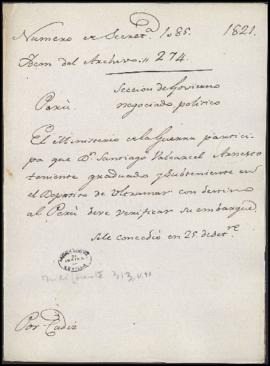 Numero en Secret.ª 1.085. 1821.
Idem del Archivo. 11 274.
Seccion de Govierno
Perú. negociado politico
El Ministerio de la Guerra participa
que Dⁿ Santiago Valcarcel Arnesto
teniente graduado y Subteniente en
el Deposito de Ultramar con destino
al Perú deve verificar su embarque.
Se le concedió en 25 de Set.re
Por Cadiz